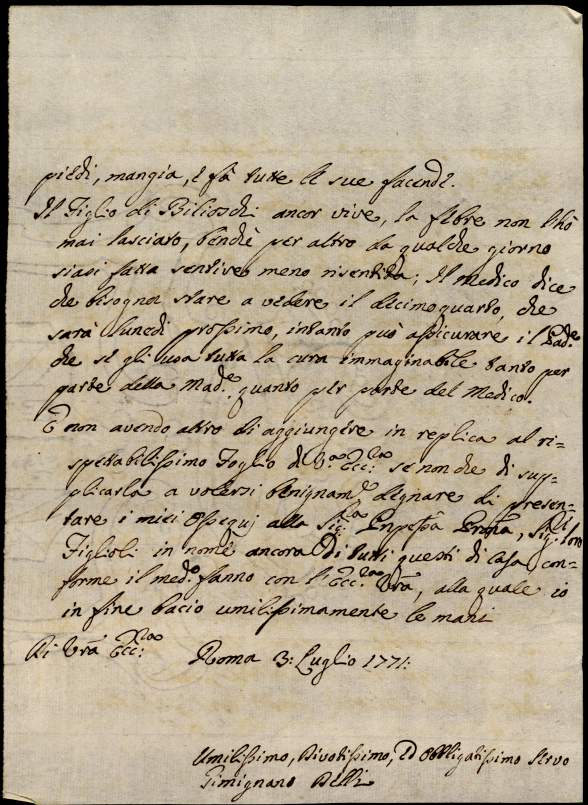 piedi, mangia, e fà tutte le sue facende.
Il Figlio di Bilioschi ancor vive, la febre non l'hà
mai lasciato, benchè per altro da qualche giorno
siasi fatta sentire meno risentita; Il Medico dice
che bisogna stare a vedere il decimoquarto, che
sarà lunedì prossimo, intanto può assicurare il Pad.e
che se gli usa tutta la cura immaginabile tanto per
parte della Mad.e, quanto per parte del Medico.
E non avendo altro di aggiungere in replica al ri-
spettabilissimo Foglio di V.a Ecc.za se non che di sup-
plicarla a volersi benignam.e degnare di presen-
tare i miei ossequj alla Sig.ra Sig.ri
Figlioli in nome ancora di tutti questi di Casa con-
forme il med.o fanno con l'Ecc.za Vrà, alla quale io
in fine bacio umilissimamente le mani
Di Vrà Ecc:za Roma 3: Luglio 1771:
Umilissimo, Divotissimo, ed Obbligatissimo Servo
Gimignano Belli